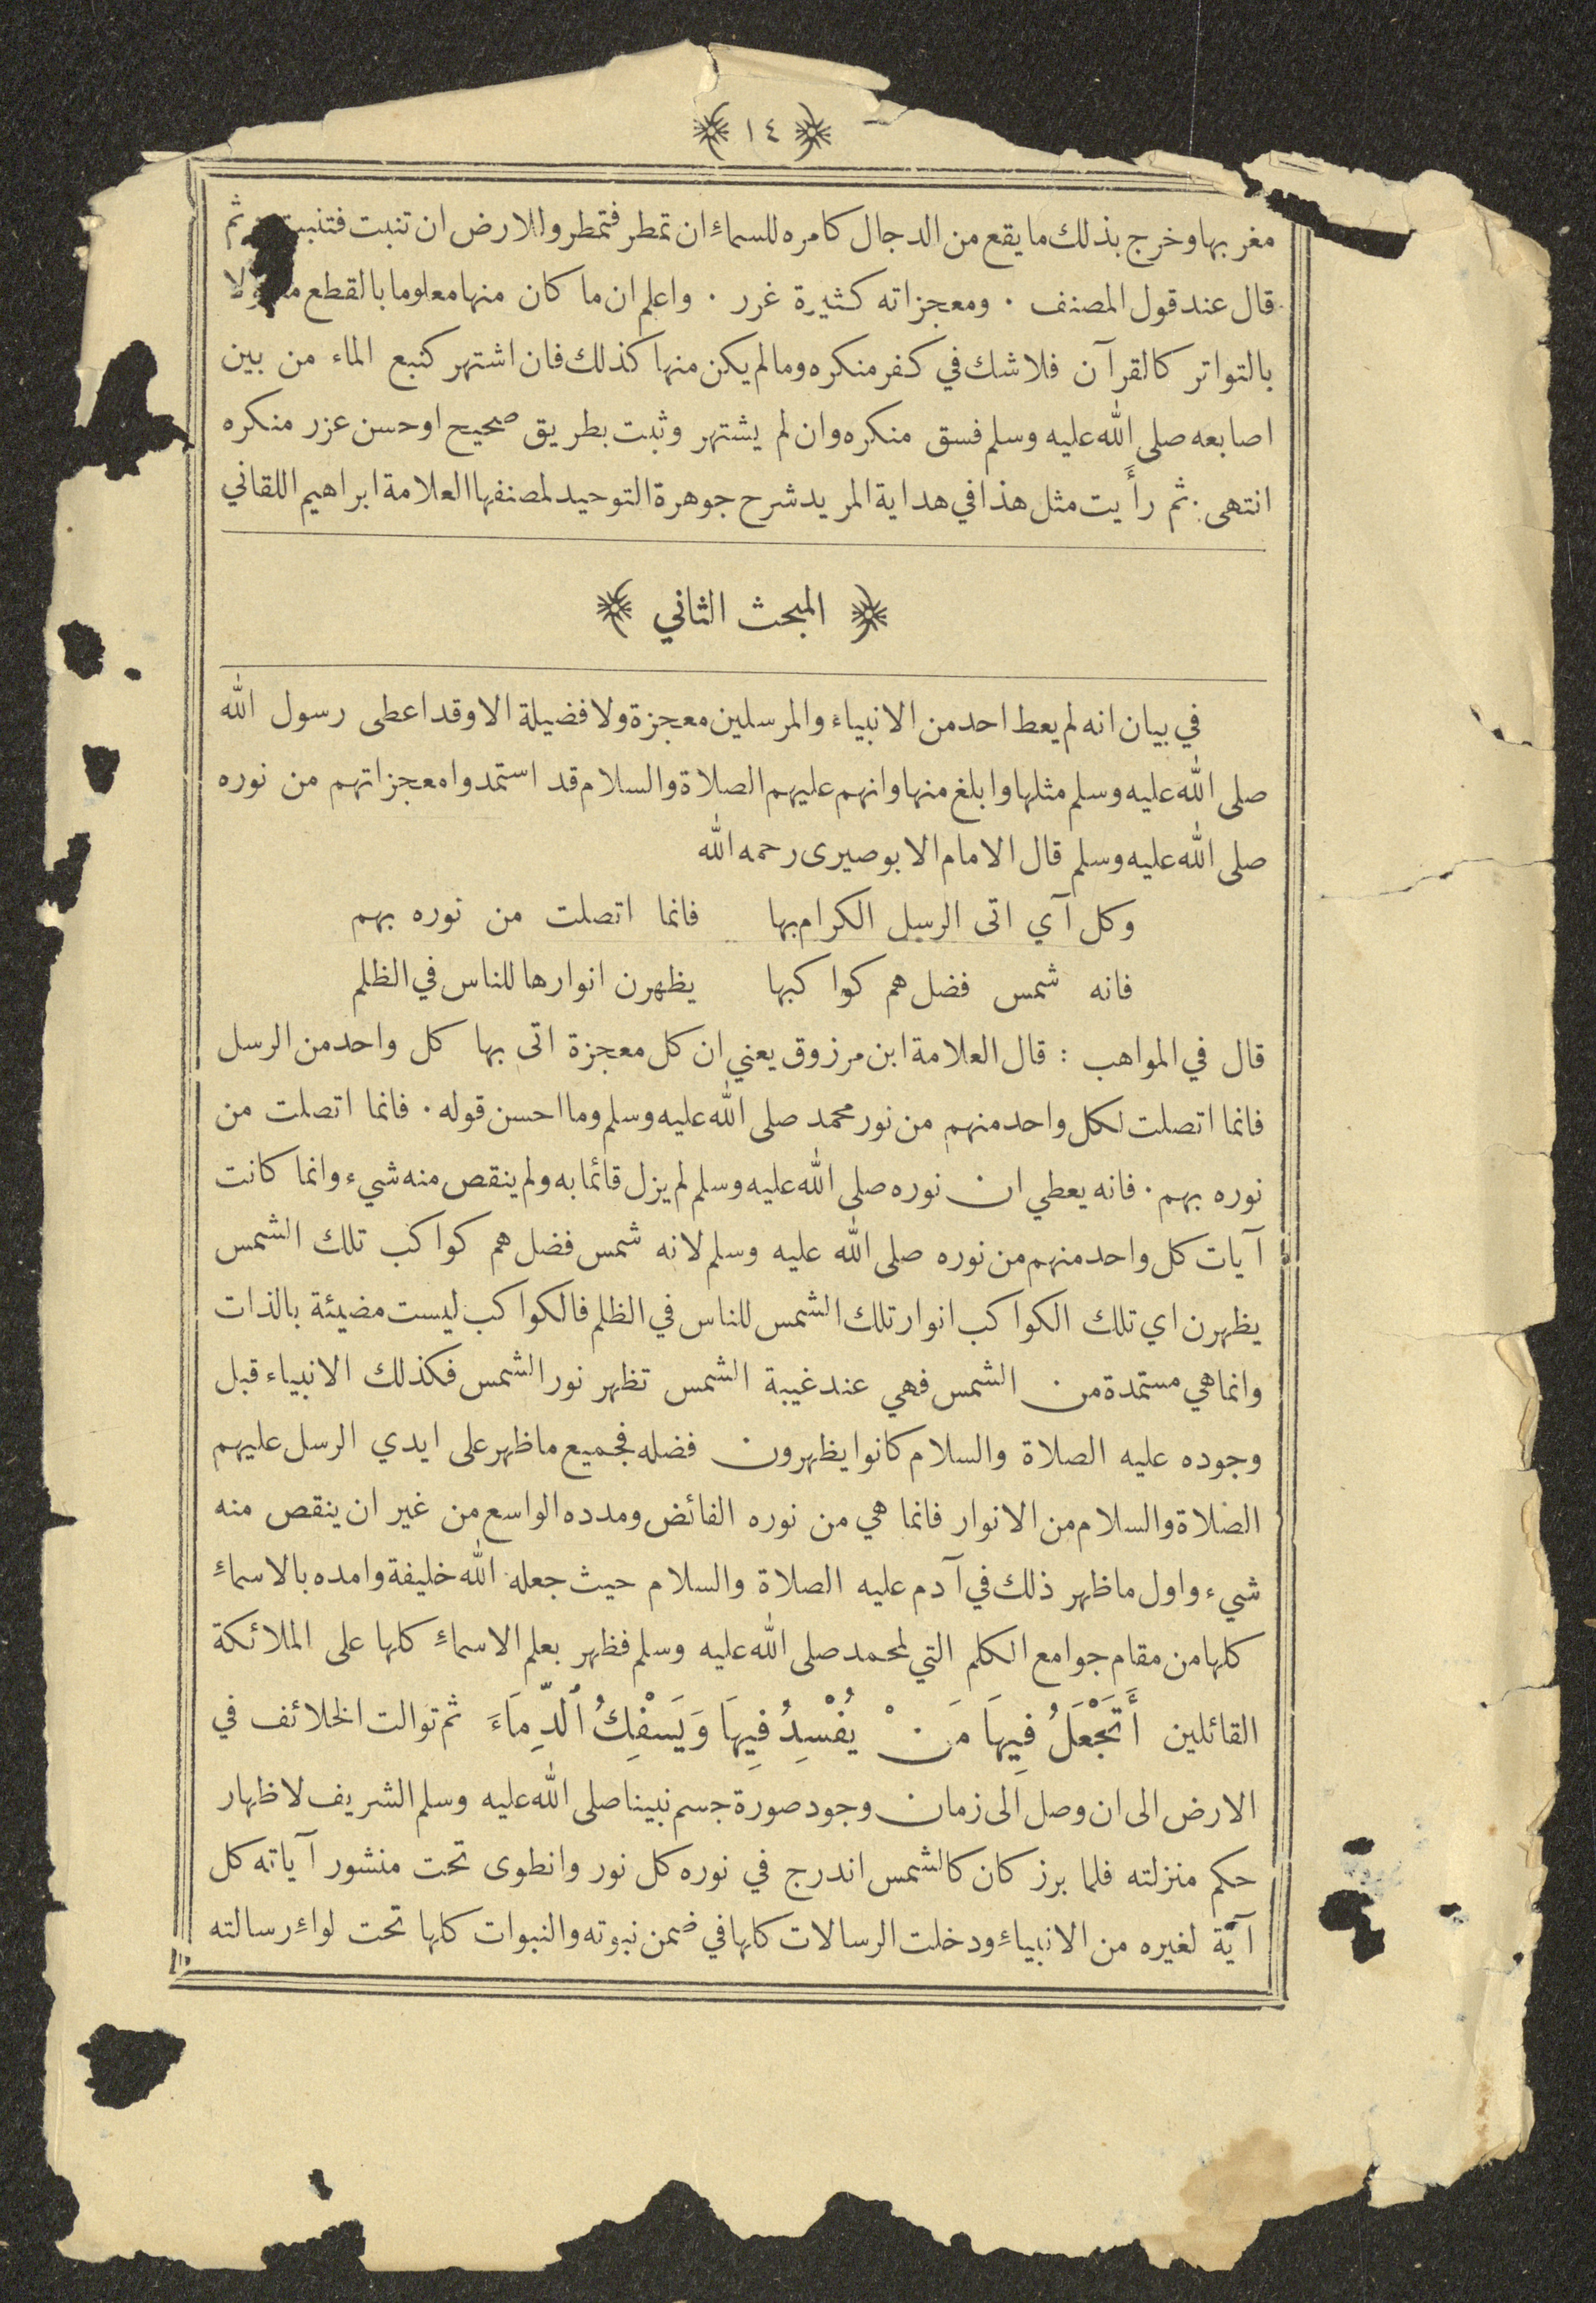 ١٤
مغربها وخرج بذلك ما يقع من الدجال كامره للسماء ان تمطر فتمطر وللارض ان تنبت فتنبت ثم
قال عند قول المصنف . ومعجزاته كثيرة غرر . واعلم ان ما كان منها معلوما بالقطع
بالتواتر كالقرآن فلا شك في كفر منكره وما لم يكن منها كذلك فان اشتهر كنبع الماء من بين
اصابعه صلى الله عليه وسلم فسق منكره وان لم يشتهر وثبت بطريق صحيح او حسن عزر منكره
انتهى . ثم رأيت مثل هذا في هداية المريد شرح جوهرة التوحيد لمصنفها العلامة ابراهيم اللقاني
المبحث الثاني
في بيان انه لم يعط احد من الانبياء والمرسلين معجزة ولا فضيلة الا وقد اعطى رسول الله
صلى الله عليه وسلم مثلها وابلغ منها وانهم عليهم الصلاة والسلام قد استمدوا معجزاتهم من نوره
صلى الله عليه وسلم قال الامام الابوصيرى رحمه الله
وكل آي اتى الرسل الكرام بها فانما اتصلت من نوره بهم
فانه شمس فضل هم كواكبها يظهرن انوارها للناس في الظلم
قال في المواهب : قال العلامة ابن مرزوق يعني ان كل معجزة اتى بها كل واحد من الرسل
فانما اتصلت لكل واحد منهم من نور محمد صلى الله عليه وسلم وما احسن قوله . فانما اتصلت من
نوره بهم . فانه يعطي ان نوره صلى الله عليه وسلم لم يزل قائما به ولم ينقص منه شيء وانما كانت
آيات كل واحد منهم من نوره صلى الله عليه وسلم لانه شمس فضل هم كواكب تلك الشمس
يظهرن اي تلك الكواكب انوار تلك الشمس للناس في الظلم فالكواكب ليست مضيئة بالذات
وانما هي مستمدة من الشمس فهي عند غيبة الشمس تظهر نور الشمس فكذلك الانبياء قبل
وجوده عليه الصلاة والسلام كانوا يظهرون فضله فجميع ما ظهر على ايدي الرسل عليهم
الصلاة والسلام من الانوار فانما هي من نوره الفائض ومدده الواسع من غير ان ينقص منه
شيء واول ما ظهر ذلك في آدم عليه الصلاة والسلام حيث جعله الله خليفة وامده بالاسماء
كلها من مقام جوامع الكلم التي لمحمد صلى الله عليه وسلم فظهر بعلم الاسماء كلها على الملائكة
القائلين أَتَجْعَلُ فِيهَا مَنْ يُفْسِدُ فِيهَا وَيَسْفِكُ ٱلدِّمَاءَ ثم توالت الخلائف في
الارض الى ان وصل الى زمان وجود صورة جسم نبينا صلى الله عليه وسلم الشريف لاظهار
حكم منزلته فلما برز كان كالشمس اندرج في نوره كل نور وانطوى تحت منشور آياته كل
آية لغيره من الانبياء ودخلت الرسالات كلها في ضمن نبوته والنبوات كلها تحت لواء رسالته